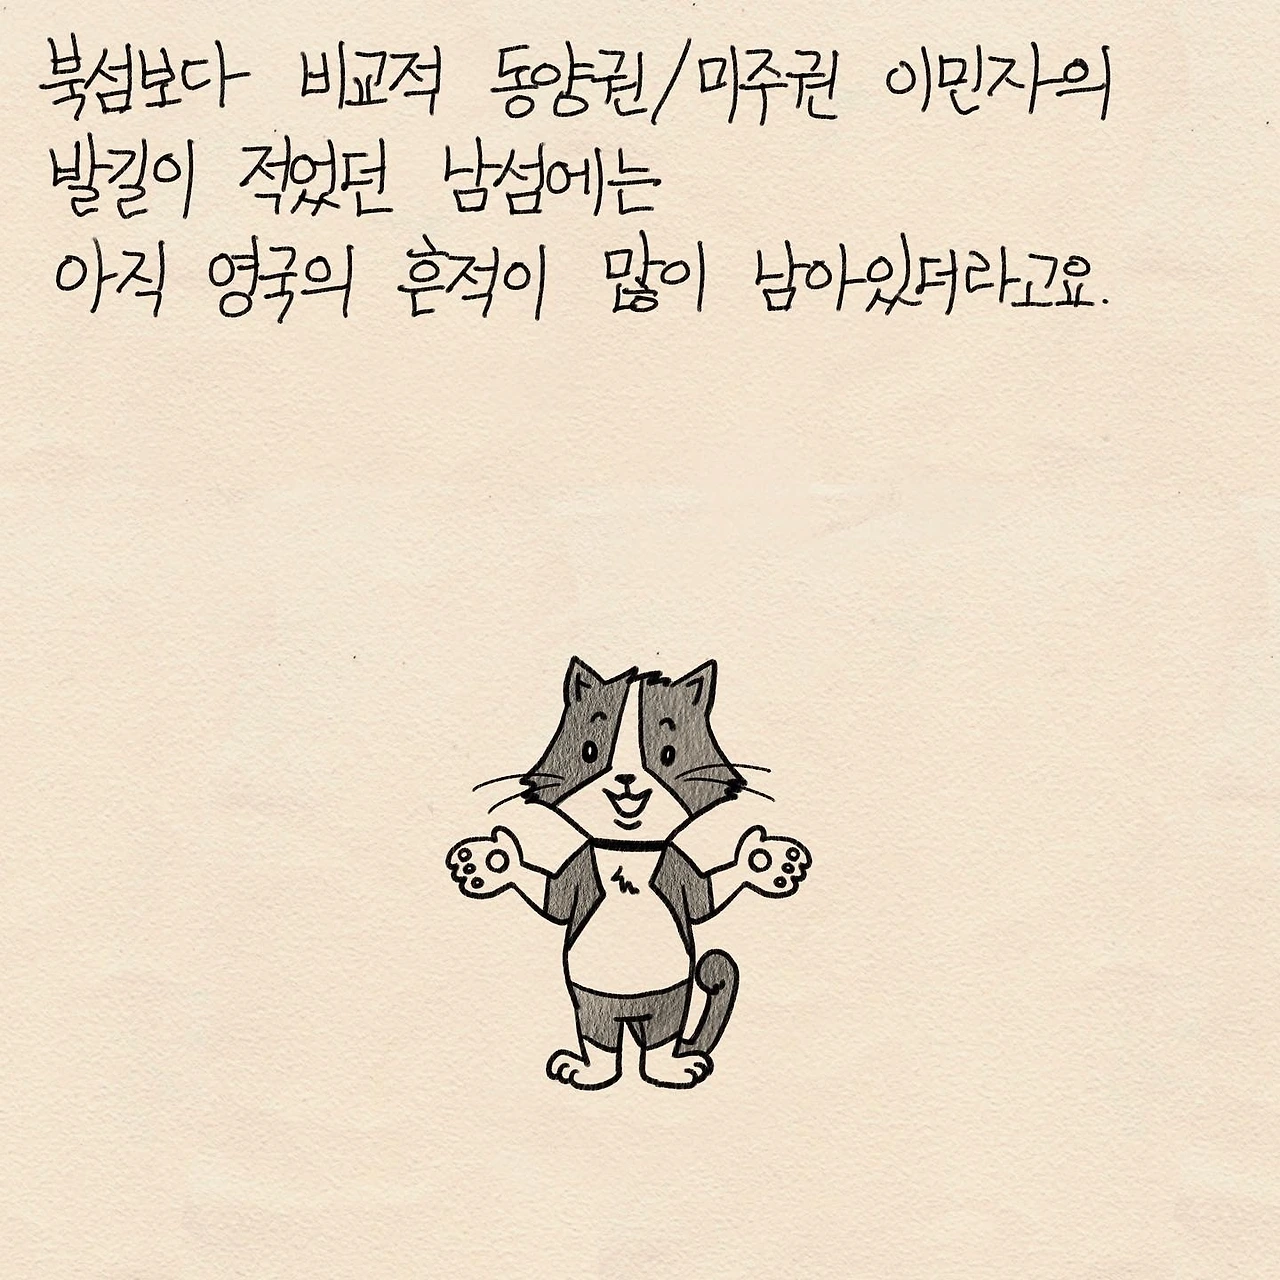 북섬보다 비교적 동양권/미주권 이민자의
발길이 적었던 남섬에는
아직 영국의 흔적이 많이 남아있더라고요.